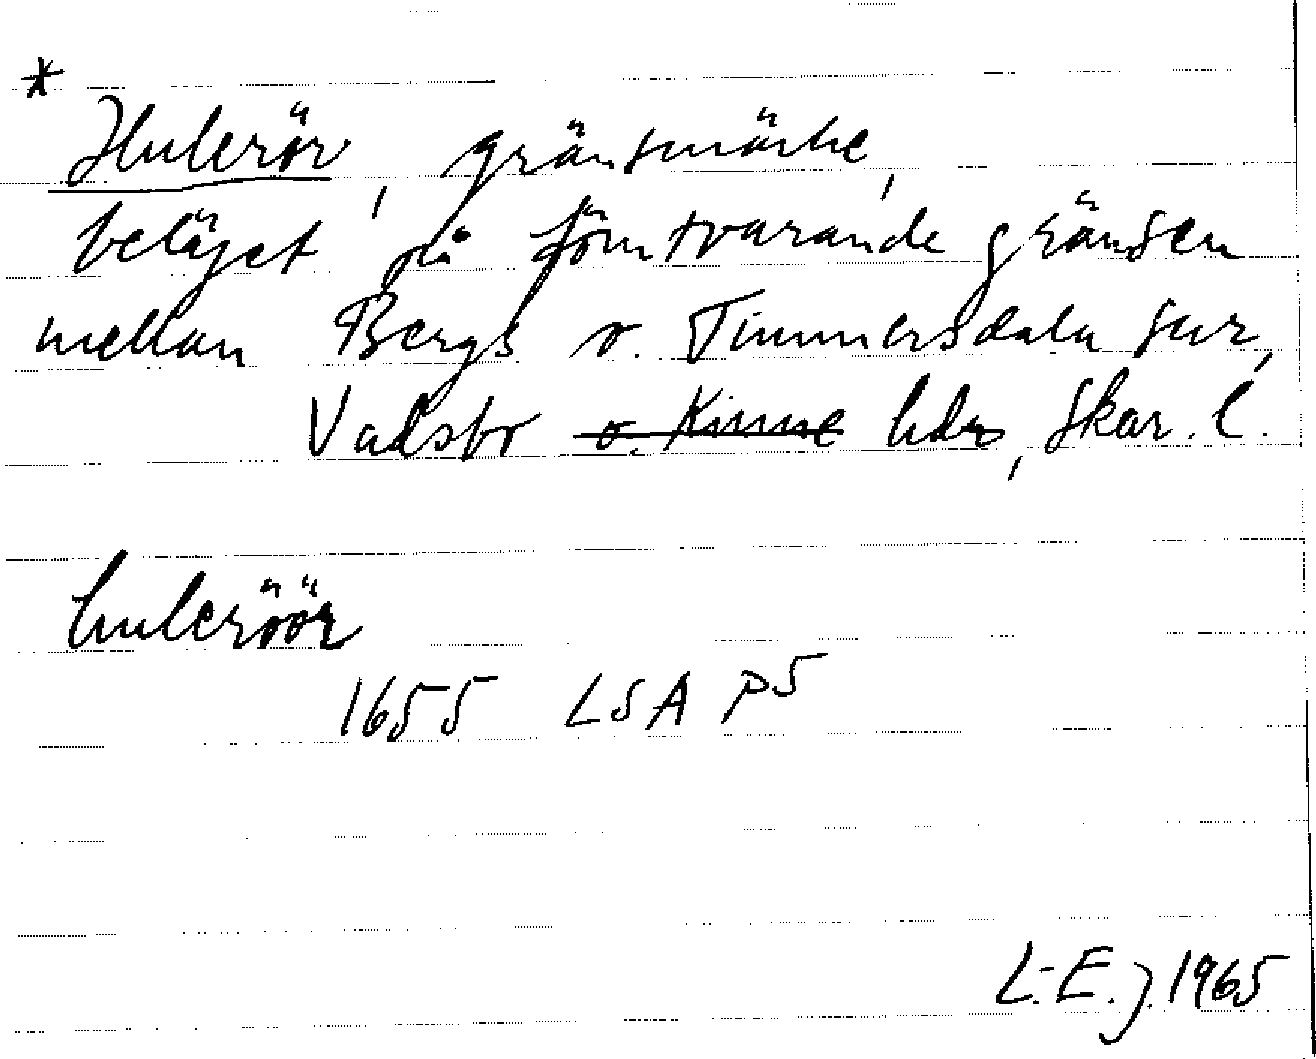 * Hulerör, gränsmärke,
beläget på förutvarande gränsen
mellan Bergs o. Timmersdala snr,
Vadsbo o. Kinne hds, Skar. l.
huleröör
1655 LSA P5
L-E.J. 1965